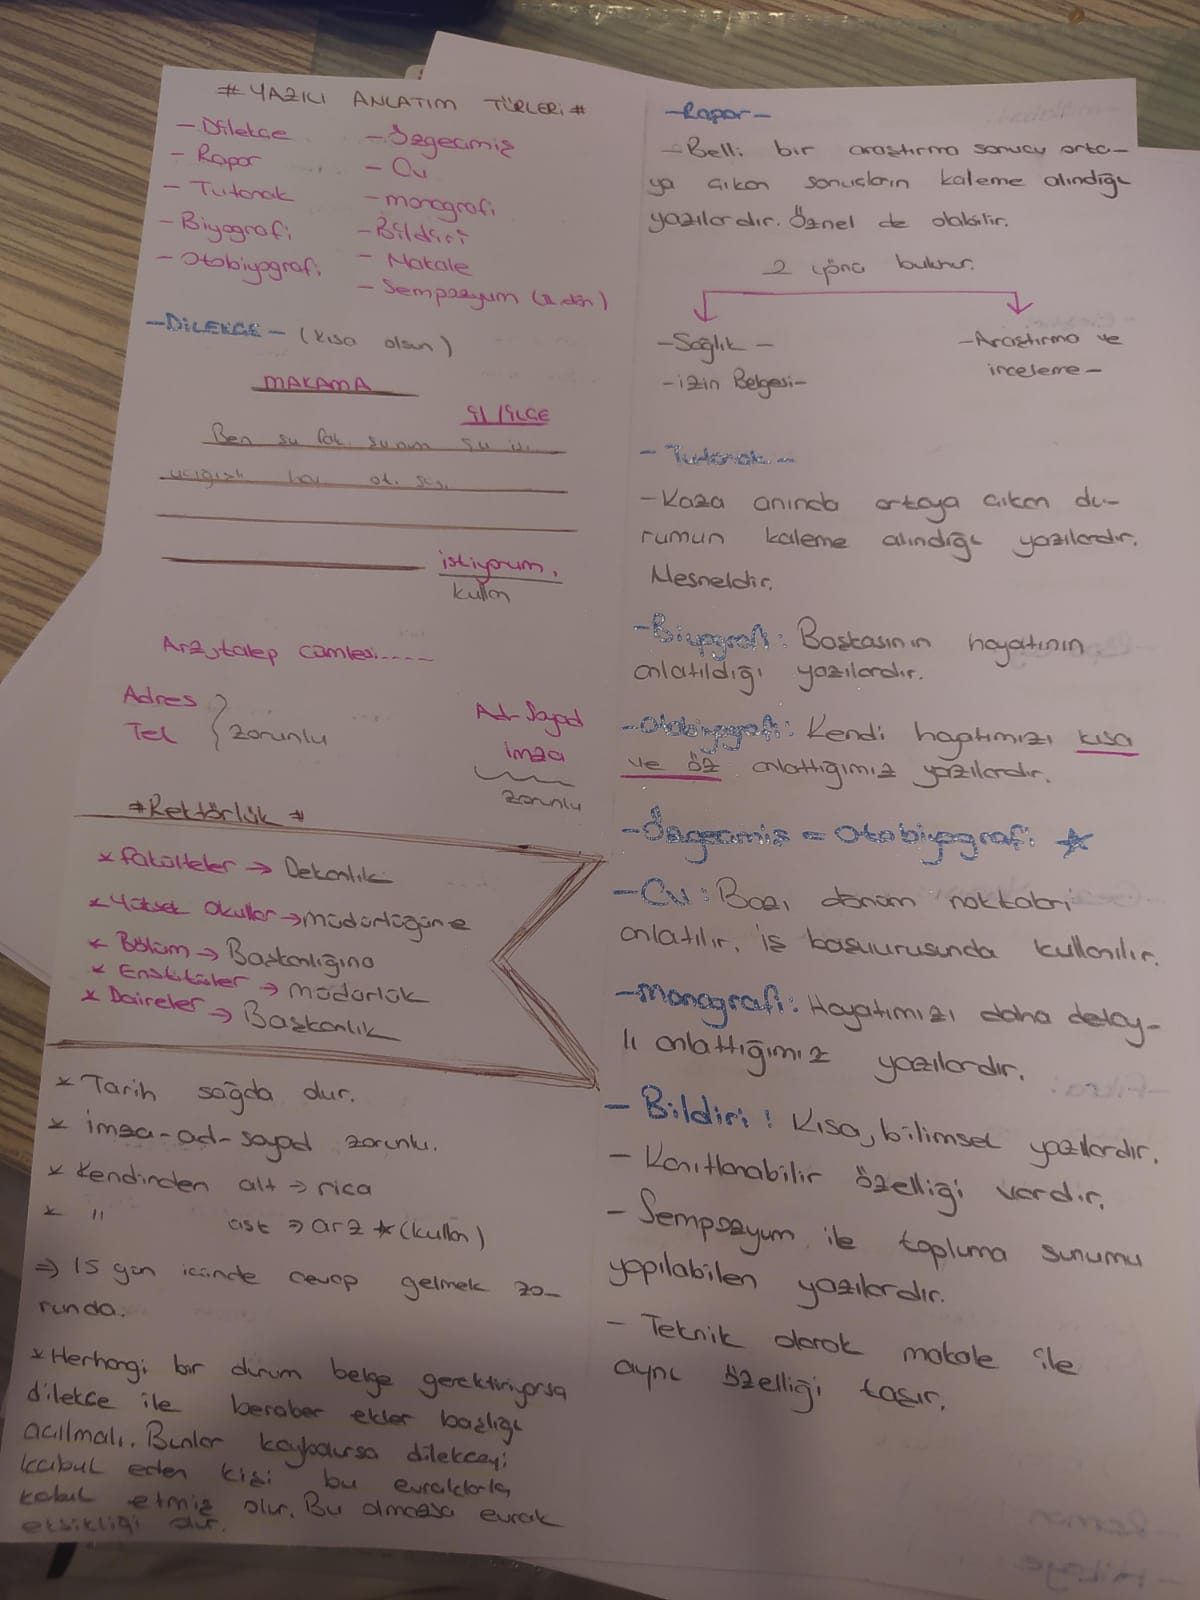 # YAZILI ANLATIM TÜRLERİ #
- Dilekçe
- Rapor
- Tutanak
- Biyografi
- Otobiyografi
- Özgeçmiş
- Cv
- monografi
- Bildiri
- Makale
- Sempozyum
- DİLEKÇE - (kısa olsun)
MAKAMA
İL/İLÇE
Ben şu fak.
istiyorum.
kullan
Arz, talep cümlesi----
Adres
Tel
zorunlu
Ad-Soyad
imza
zorunlu
* Rektörlük *
* Fakülteler → Dekanlık
* Yüksek Okullar → müdürlüğüne
* Bölüm → Başkanlığına
* Enstitüler → müdürlük
* Daireler → Başkanlık
* Tarih sağda dur.
* imza-ad-soyad zorunlu.
* Kendinden alt → rica
* " üst → arz ★ (kullan)
⇒ 15 gün içinde cevap gelmek zo-
runda.
* Herhangi bir durum belge gerektiriyorsa
dilekçe ile beraber ekler başlığı
açılmalı. Bunlar kaybolursa dilekçeyi
kabul eden kişi bu evraklarla
kabul etmiş olur. Bu olmazsa evrak
eksikliği olur.
- Rapor -
- Belli bir araştırma sonucu orta-
ya çıkan sonuçların kaleme alındığı
yazılardır. Öznel de olabilir.
2 yönü bulunur.
- Sağlık -
- izin Belgesi -
- Araştırma ve
inceleme -
- Tutanak -
- Kaza anında ortaya çıkan du-
rumun kaleme alındığı yazılardır.
Nesneldir.
- Biyografi: Başkasının hayatının
anlatıldığı yazılardır.
- Otobiyografi: Kendi hayatımızı kısa
ve öz anlattığımız yazılardır.
- Özgeçmiş = Otobiyografi ★
- Cv: Bazı dönüm noktaları
anlatılır. iş başvurusunda kullanılır.
- Monografi: Hayatımızı daha detay-
lı anlattığımız yazılardır.
- Bildiri: Kısa, bilimsel yazılardır.
- Kanıtlanabilir özelliği vardır.
- Sempozyum ile topluma sunumu
yapılabilen yazılardır.
- Teknik olarak makale ile
aynı özelliği taşır.